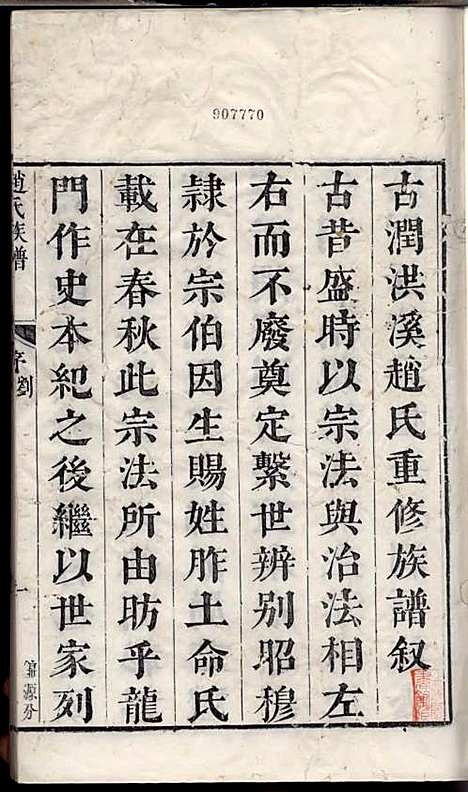 907770
古潤洪溪趙氏重修族譜叙
古昔盛時以宗法與治法相左
右而不廢奠定繫世辨别昭穆
隷於宗伯因生賜姓胙土命氏
載在春秋此宗法所由昉乎龍
門作史本紀之後繼以世家列
趙氏族譜
序劉
一